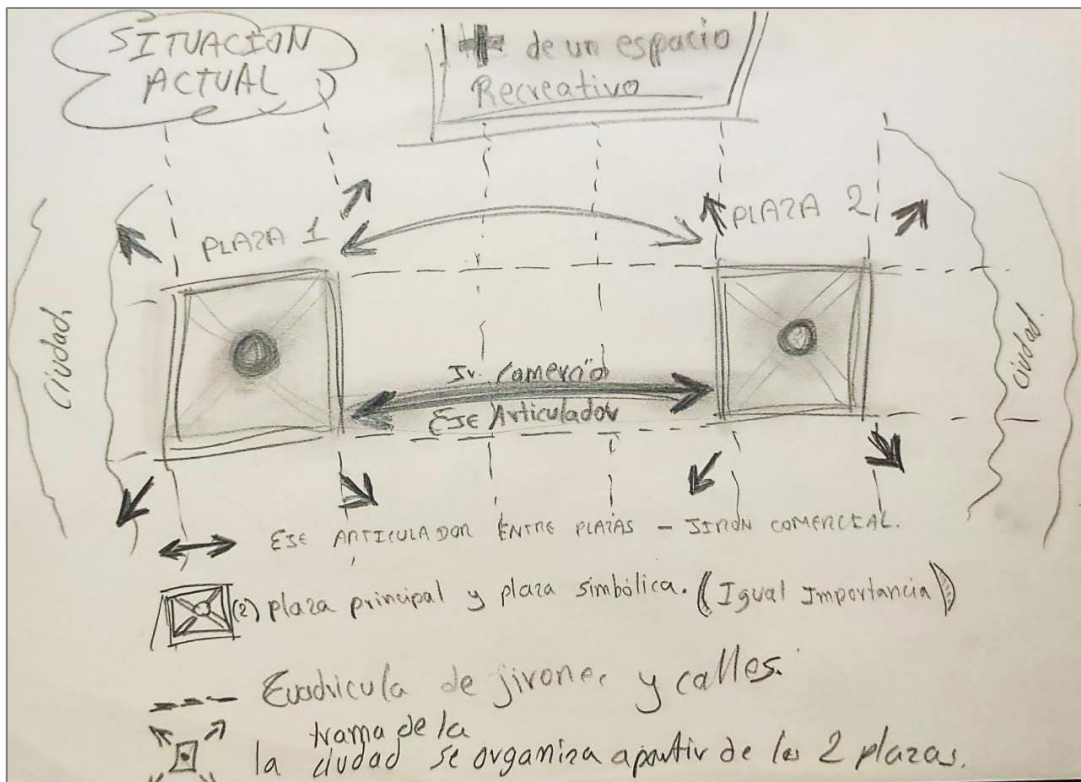 SITUACION
ACTUAL
+ de un espacio
Recreativo
PLAZA 1
PLAZA 2
Ciudad.
Ciudad.
Jr. Comercio
EJE Articulador
EJE ARTICULADOR ENTRE PLAZAS - JIRÓN COMERCIAL.
(2) plaza principal y plaza simbólica. (Igual Importancia)
Cuadricula de jirones y calles.
trama de la
la ciudad se organiza apartir de las 2 plazas.